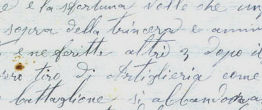 e la sfortuna volle che un
sopra della trincera e amm
ne ferite altri 3 dopo il
tiro di Artiglieria come
battaglione si abbandona